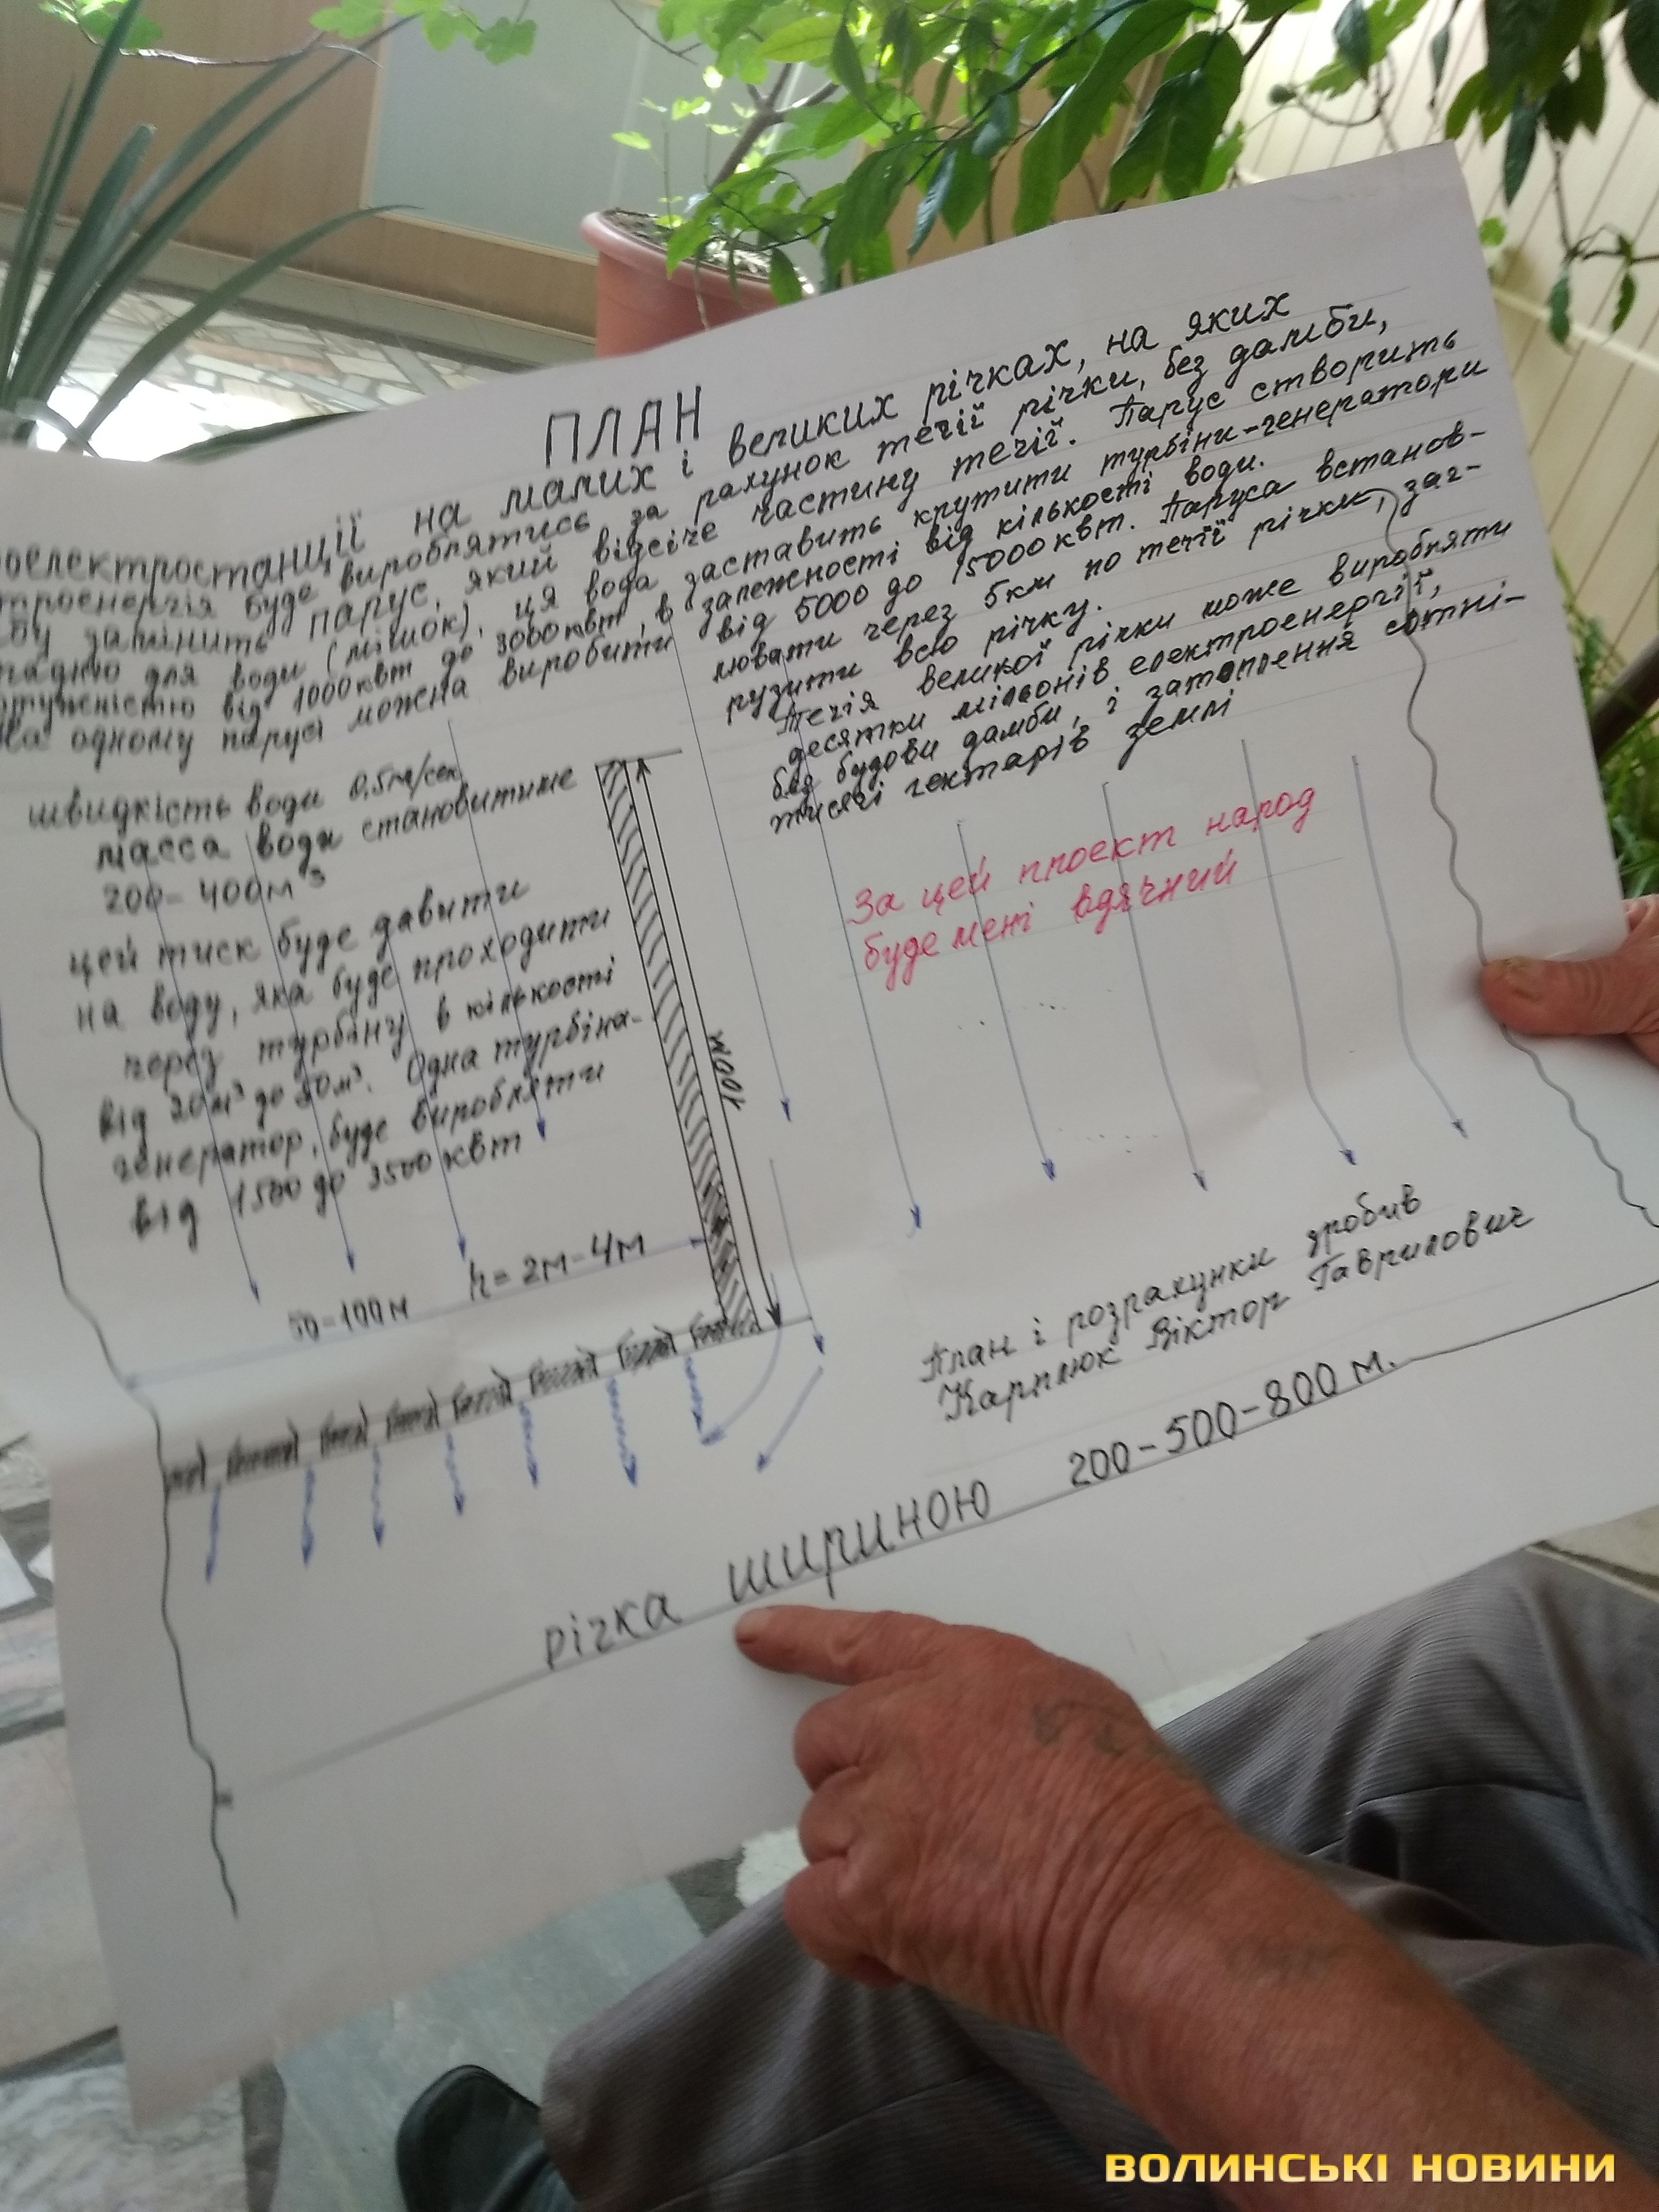 ПЛАН
роелектростанції на малих і великих річках, на яких
троенергія буде вироблятись за рахунок течії річки, без дамби,
бу замінить парус, який відсіче частину течії. Парус створить
падню для води (мішок), ця вода заставить крутити турбіни-генератори
отужністю від 1000квт до 3000квт, в залежності від кількості води.
На одному парусі можна виробити від 5000 до 15000 квт. Паруса встанов-
лювати через 5км по течії річки, заг-
рузити всю річку.
Течія великої річки може виробляти
десятки мільонів електроенергії,
без будови дамби, і затоплення сотні-
тисячі гектарів землі
швидкість води 0,5м/сек
масса води становитиме
200-400м³
цей тиск буде давити
на воду, яка буде проходити
через турбіну в кількості
від 20м³ до 50м³. Одна турбіна-
генератор, буде виробляти
від 1500 до 3500 квт
100м
За цей проект народ
буде мені вдячний
h = 2м-4м
50-100м
План і розрахунки зробив
Карплюк Віктор Гаврилович
річка шириною 200-500-800 м.
ВОЛИНСЬКІ НОВИНИ